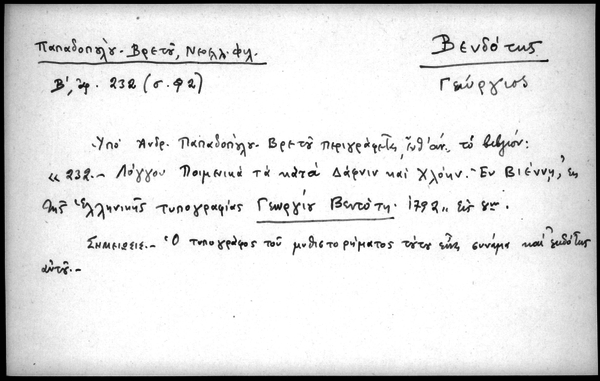 Παπαδοπούλου-Βρετοῦ, Νεοελλ. Φιλ.
Βενδότης
Β', ἀρ. 232 (σ. 92)
Γεώργιος
Ὑπὸ Ἀνδρ. Παπαδοπούλου-Βρετοῦ περιγράφεται, τὸ βιβλίον:
«232.- Λόγγου Ποιμενικὰ τὰ κατὰ Δάφνιν καὶ Χλόην. Ἐν Βιέννῃ, ἐκ
τῆς Ἑλληνικῆς τυπογραφίας Γεωργίου Βεντότη. 1792» εἰς 8ον.
Σημείωσις.- Ὁ τυπογράφος τοῦ μυθιστορήματος τούτου εἶναι συνάμα καὶ ἐκδότης
αὐτοῦ.-